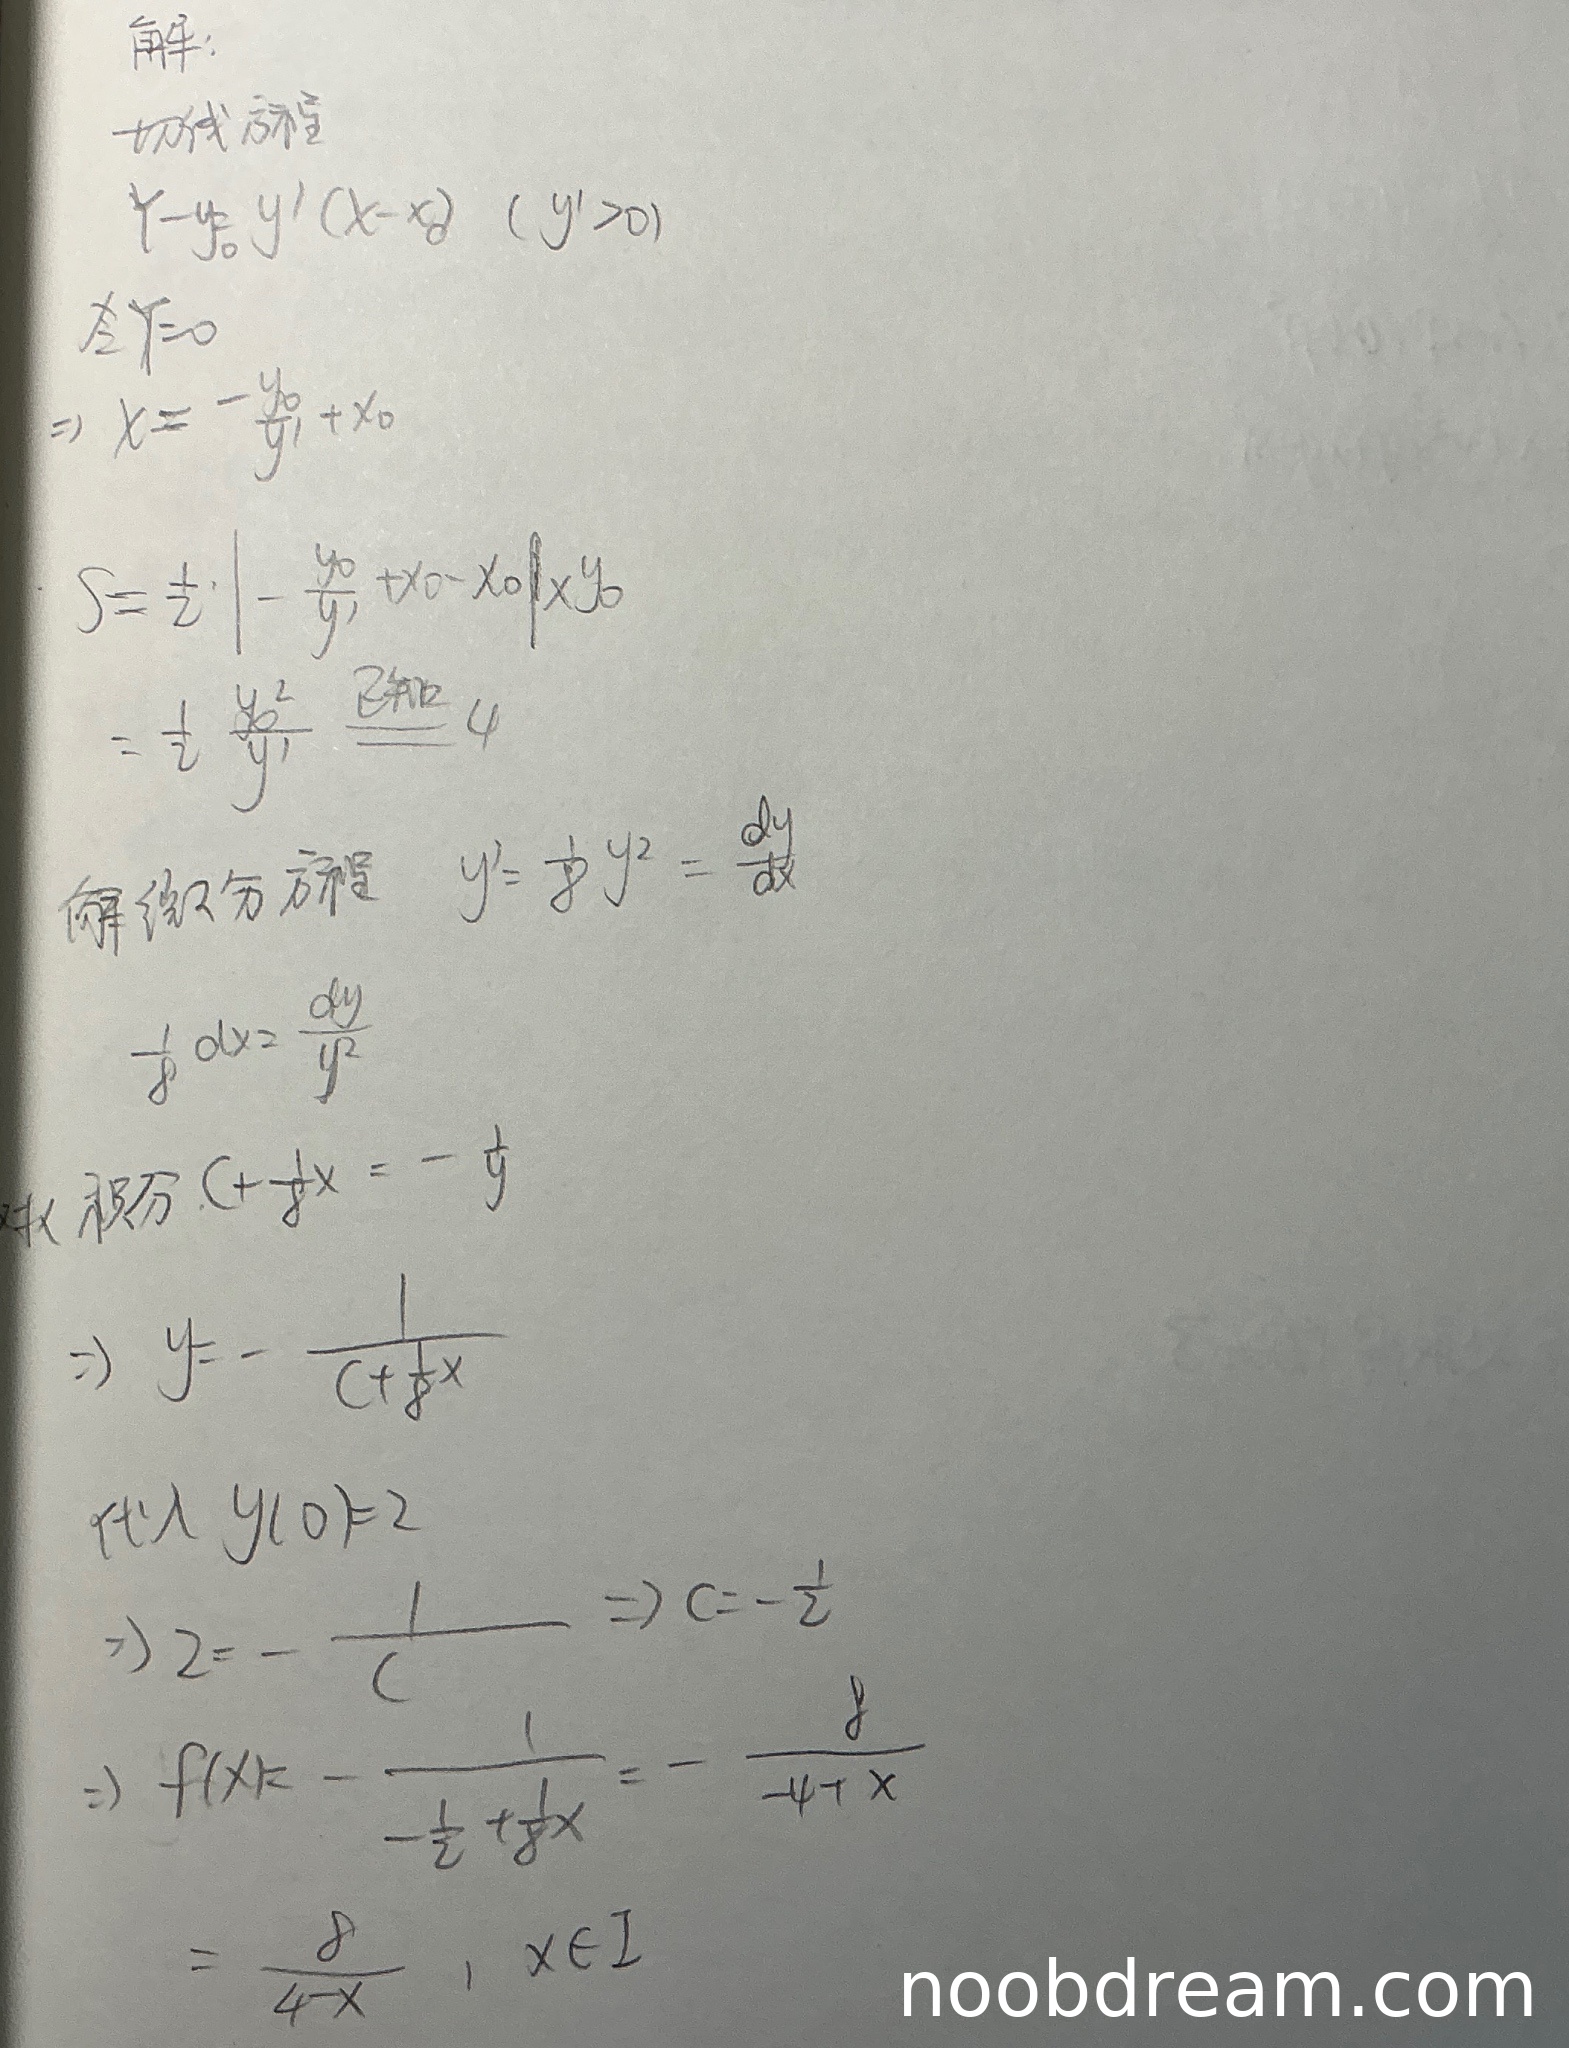 解:
切线方程
Y-y₀=y'(X-x₀) (y'>0)
令Y=0
=> X= -y₀/y' + x₀
S= 1/2·|-y₀/y' +x₀-x₀|×y₀
= 1/2 y₀²/y' 已知== 4
解微分方程 y'= 1/8 y² = dy/dx
1/8 dx= dy/y²
积分 C+1/8x = - 1/y
=> y= - 1/(C+1/8x)
代入 y(0)=2
=> 2= - 1/C => C=-1/2
=> f(x)= - 1/(-1/2+1/8x) = - 8/(-4+x)
= 8/(4-x) , x∈I
noobdream.com